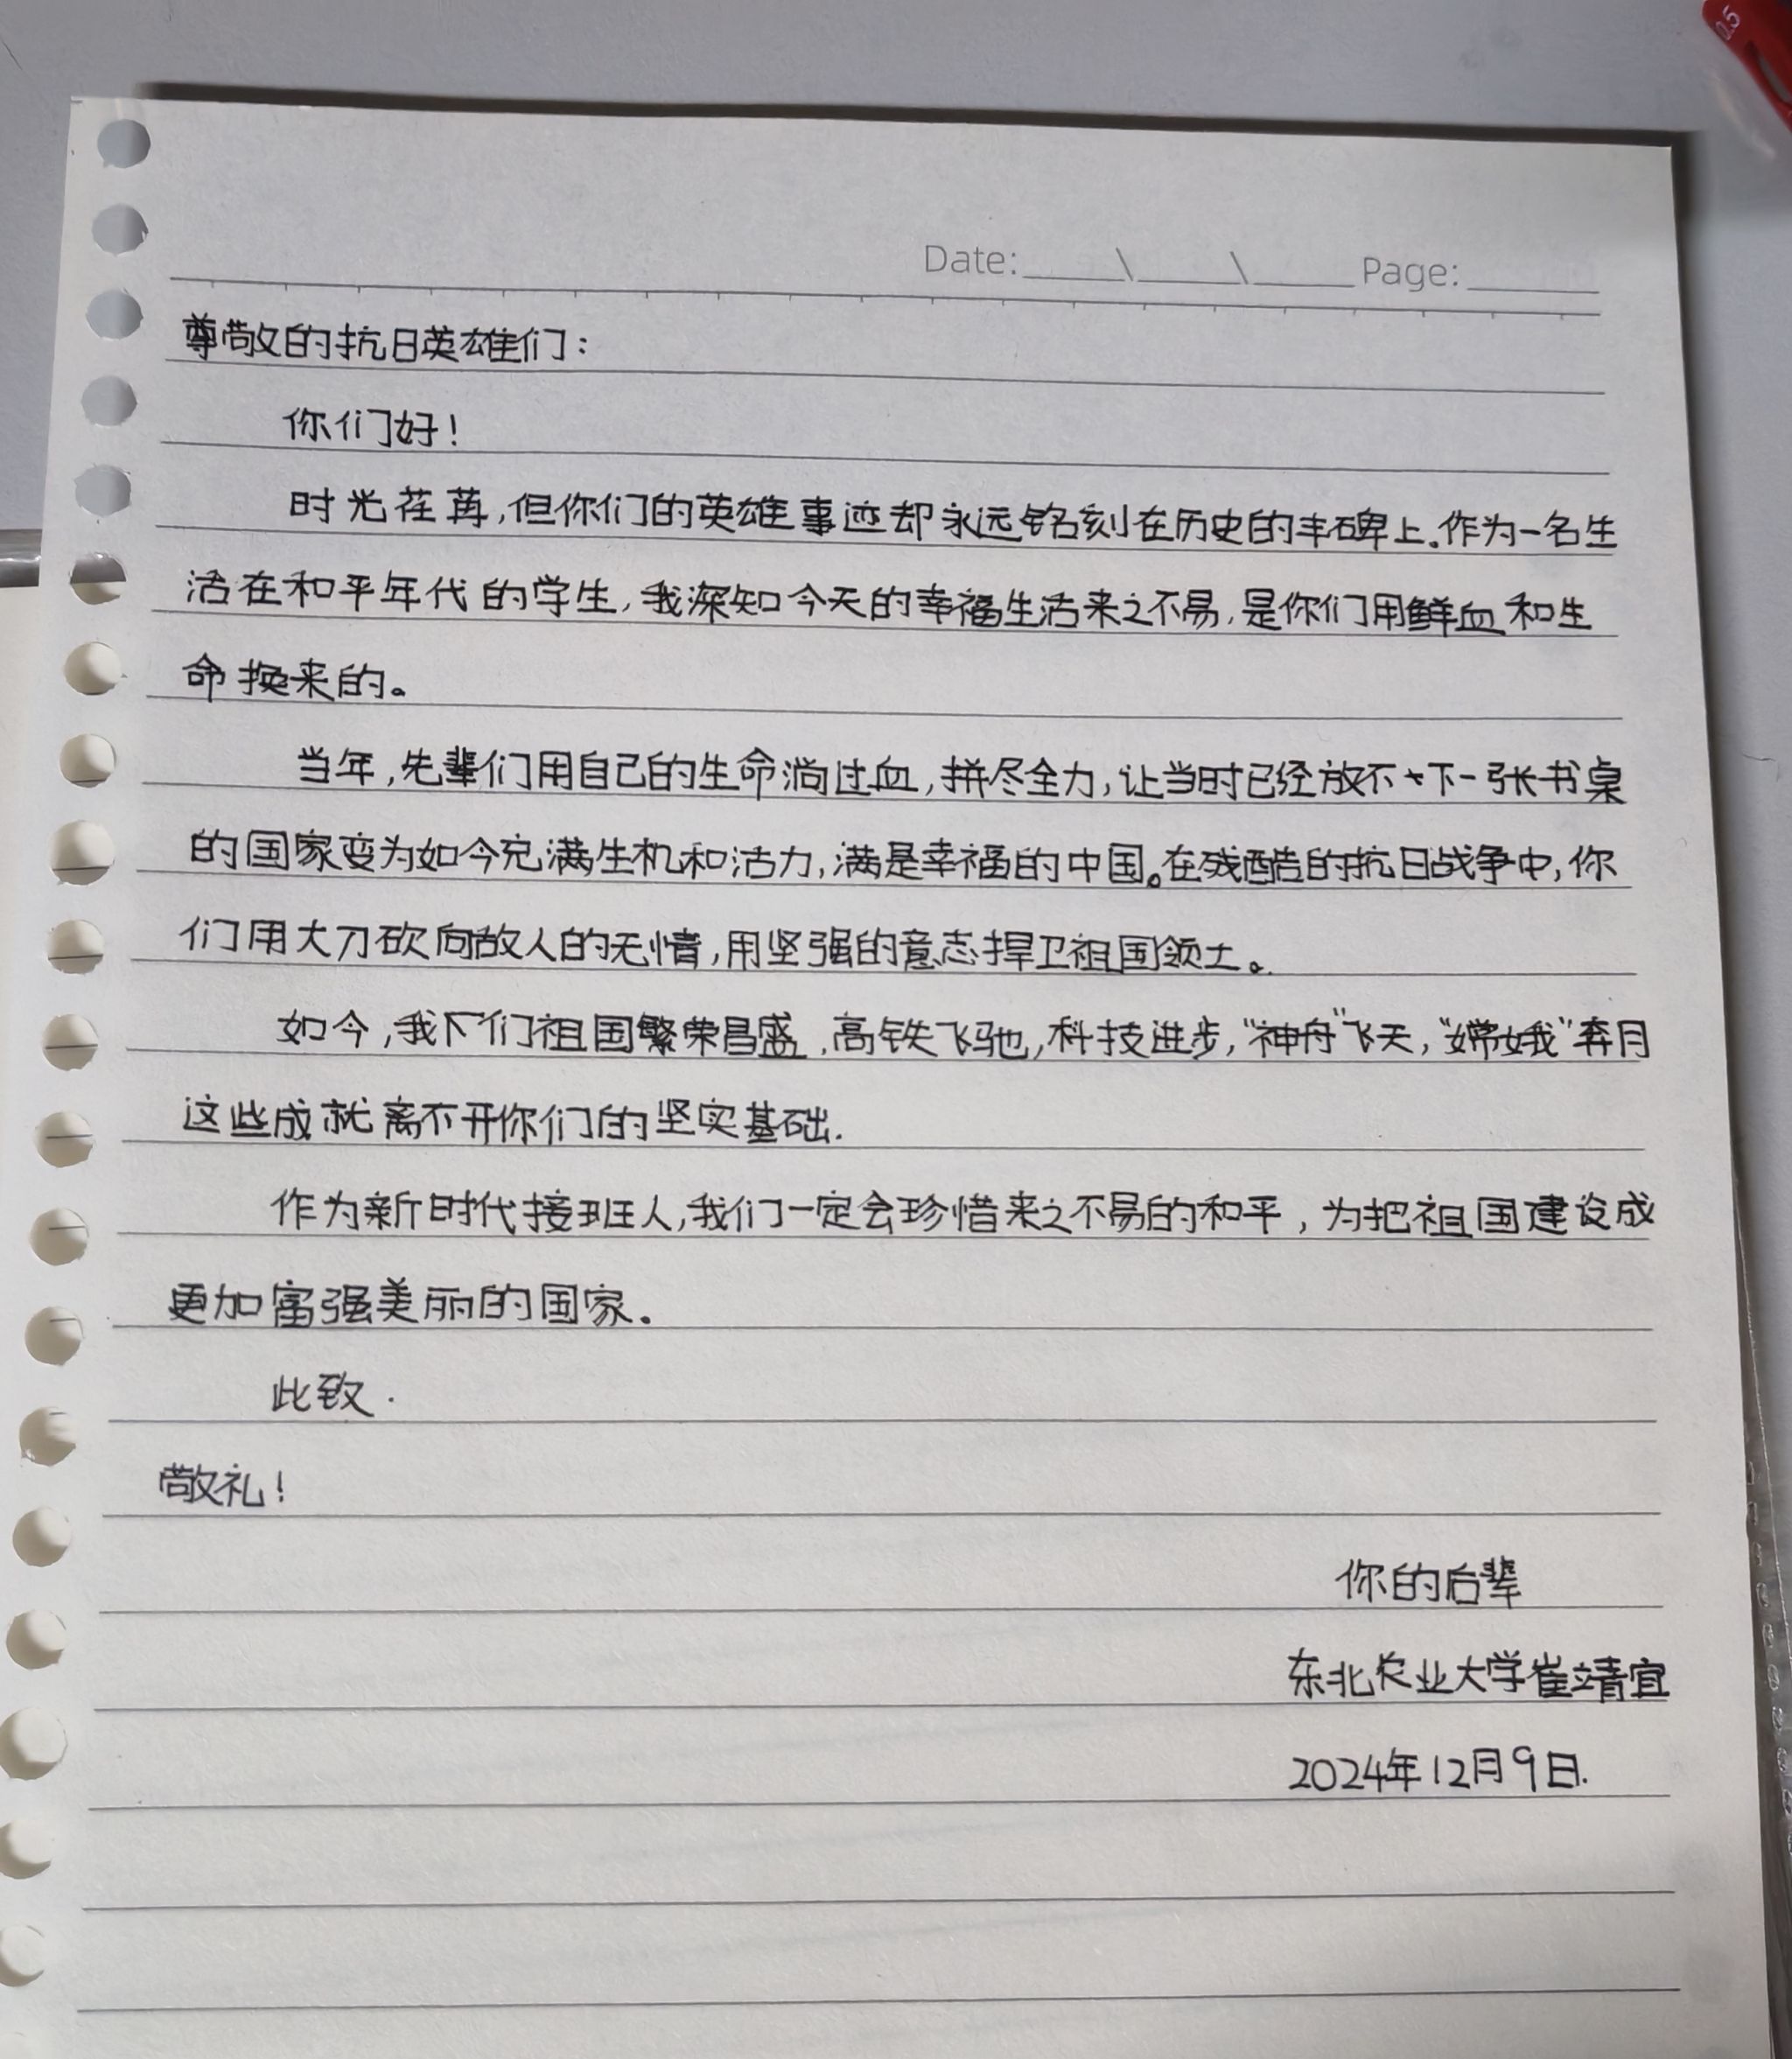 0.5
Date:____\____\____Page:____
尊敬的抗日英雄们：
你们好！
时光荏苒，但你们的英雄事迹却永远铭刻在历史的丰碑上.作为一名生
活在和平年代的学生，我深知今天的幸福生活来之不易，是你们用鲜血和生
命换来的。
当年，先辈们用自己的生命淌过血，拼尽全力，让当时已经放不下一张书桌
的国家变为如今充满生机和活力，满是幸福的中国。在残酷的抗日战争中，你
们用大刀砍向敌人的无情，用坚强的意志捍卫祖国领土。
如今，我们祖国繁荣昌盛，高铁飞驰，科技进步，“神舟”飞天，“嫦娥”奔月
这些成就离不开你们的坚实基础.
作为新时代接班人，我们一定会珍惜来之不易的和平，为把祖国建设成
更加富强美丽的国家。
此致.
敬礼！
你的后辈
东北农业大学崔靖宜
2024年12月9日.